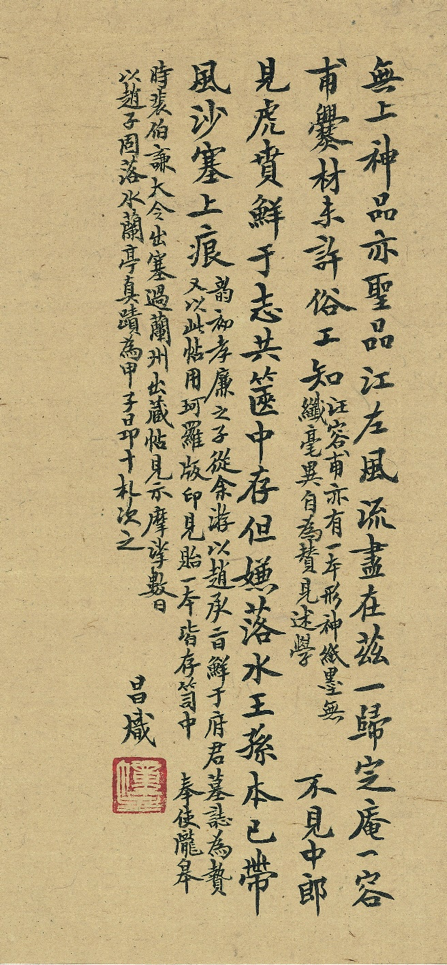 無上神品亦聖品江左風流盡在茲一歸定庵一容
甫爨材未許俗工知
汪容甫亦有一本形神紙墨無
纖毫異自為贊見述學
不見中郎
見虎賁鮮于志共篋中存但嫌落水王孫本已帶
風沙塞上痕
韵初孝廉之子從余游以趙承旨鮮于府君墓誌為贄
又以此帖用珂羅版印見貽一本皆存笥中
奉使隴皋
時裴伯謙大令出塞過蘭州出藏帖見示摩挲數日
以趙子固落水蘭亭真蹟為甲子昂十札次之
昌熾